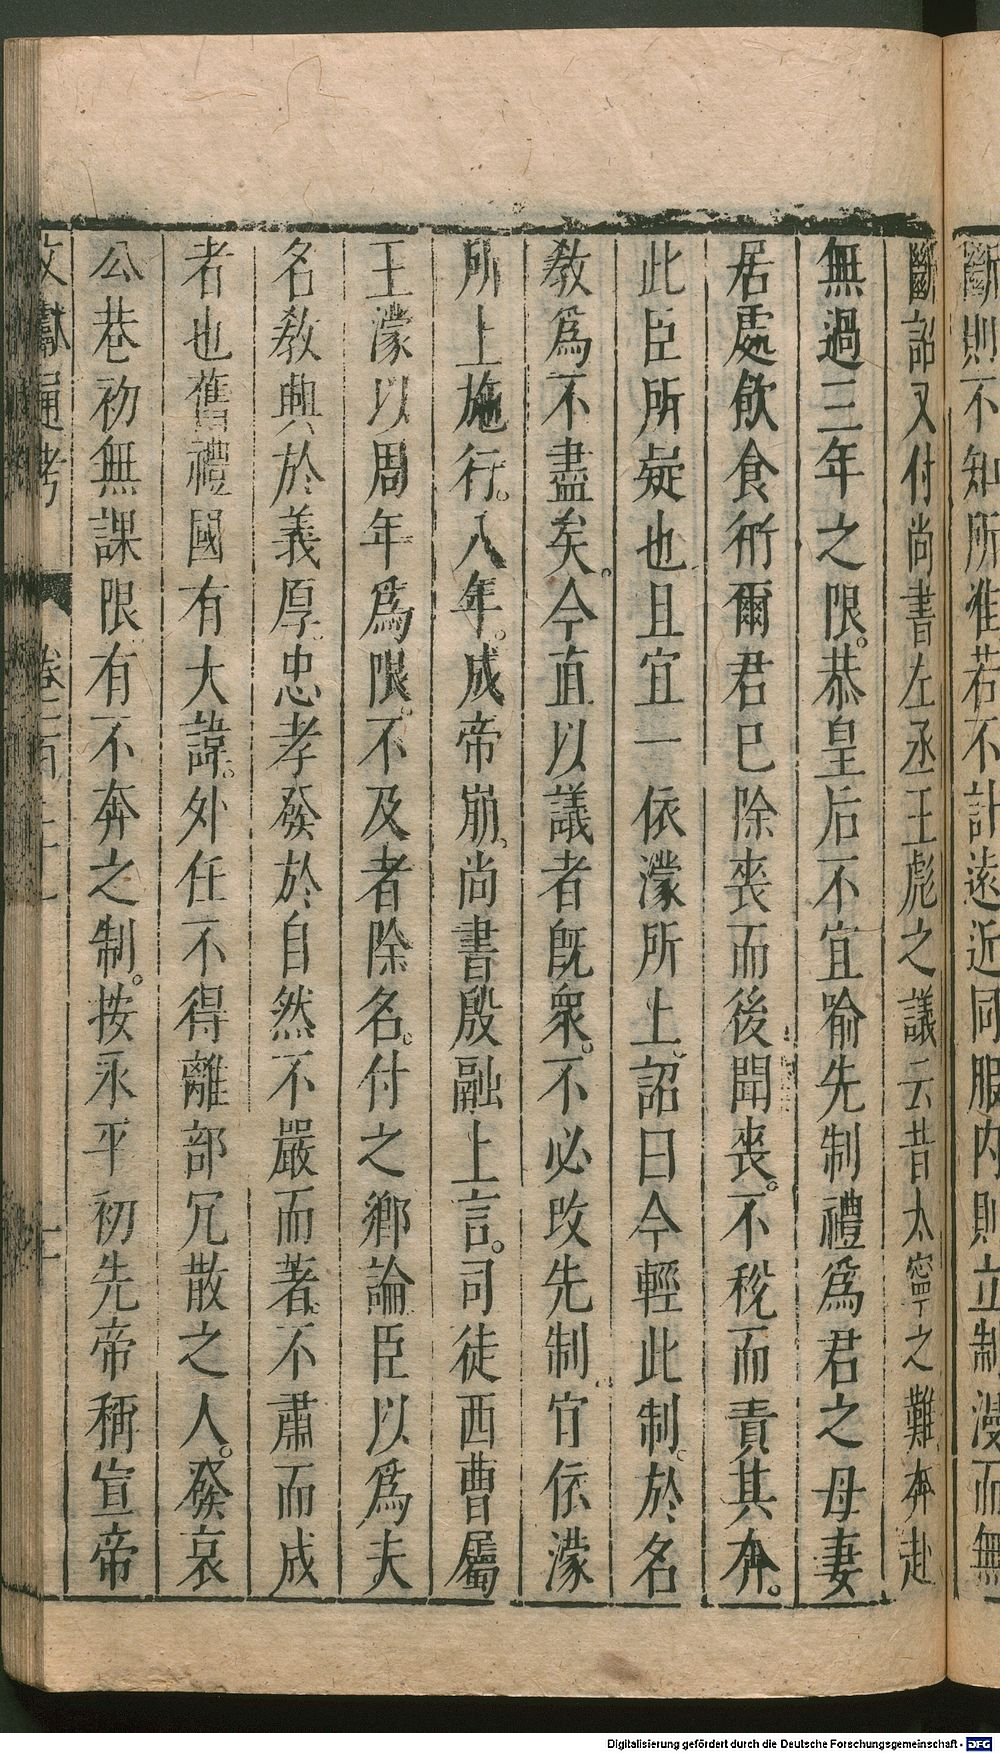 斷則不知所准若不計遠近同服内則立制漫而無
斷詔又付尚書左丞王彪之議云昔太寧之難奔赴
無過三年之限。恭皇后不宜踰先制禮爲君之母妻
居處飲食衎爾君已除喪而後聞喪。不稅而責其奔。
此臣所疑也且宜一依濛所上。詔曰今輕此制。於名
教爲不盡矣。今直以議者既衆。不必改先制。官依濛
所上施行。八年。成帝崩。尚書殷融上言。司徒西曹屬
王濛以周年爲限。不及者除名。付之鄉論臣以爲夫
名教興於義厚。忠孝發於自然不嚴而著。不肅而成
者也舊禮國有大諱。外任不得離部冗散之人。發哀
公巷初無課限有不奔之制。按永平初先帝稱宣帝
文獻通考 卷一百二十一
Digitalisierung gefördert durch die Deutsche Forschungsgemeinschaft - DFG